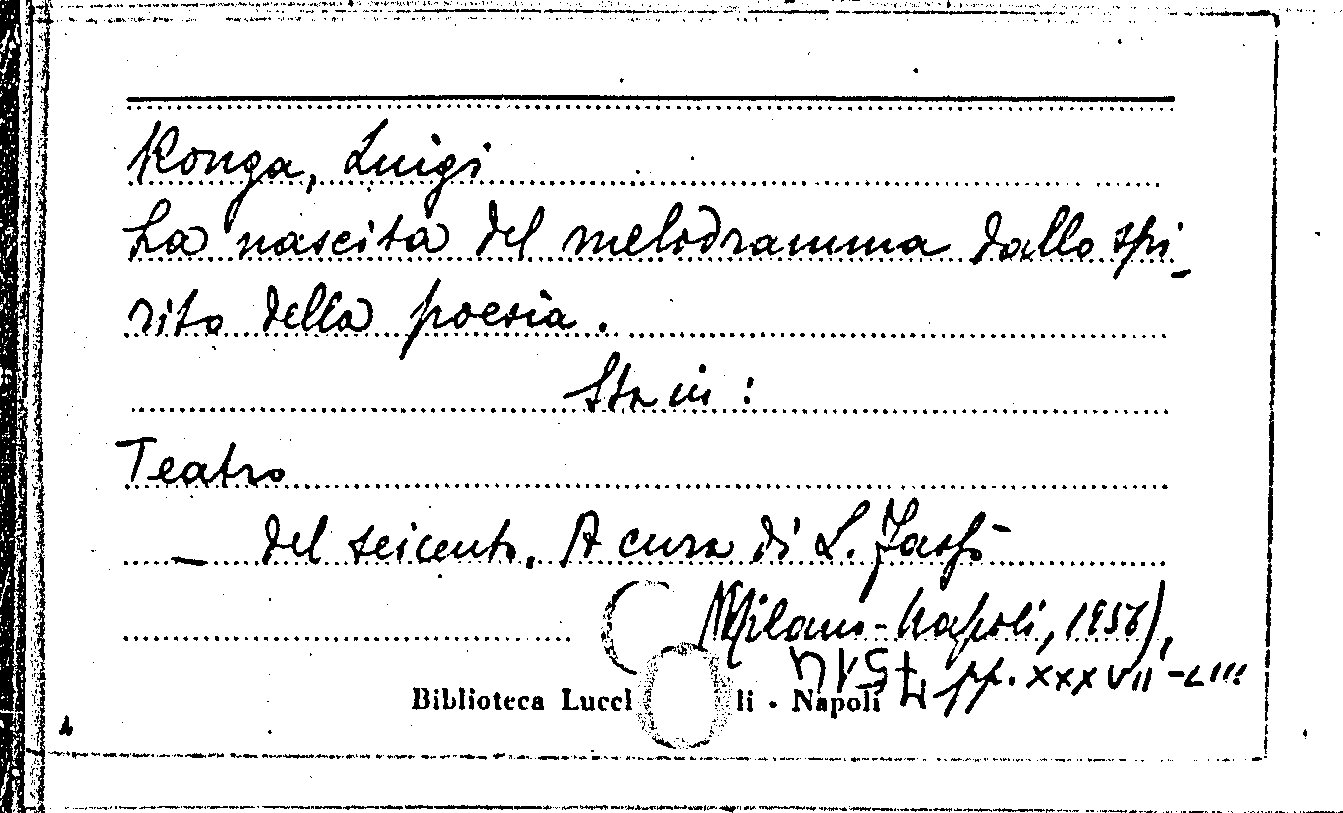 Ronga, Luigi
La nascita del melodramma dallo spi-
rito della poesia.
Sta in:
Teatro
— del seicento. A cura di L. Fassò
(Milano-Napoli, 1956),
pp. XXXVII-LIII
Biblioteca Lucchesi Palli - Napoli